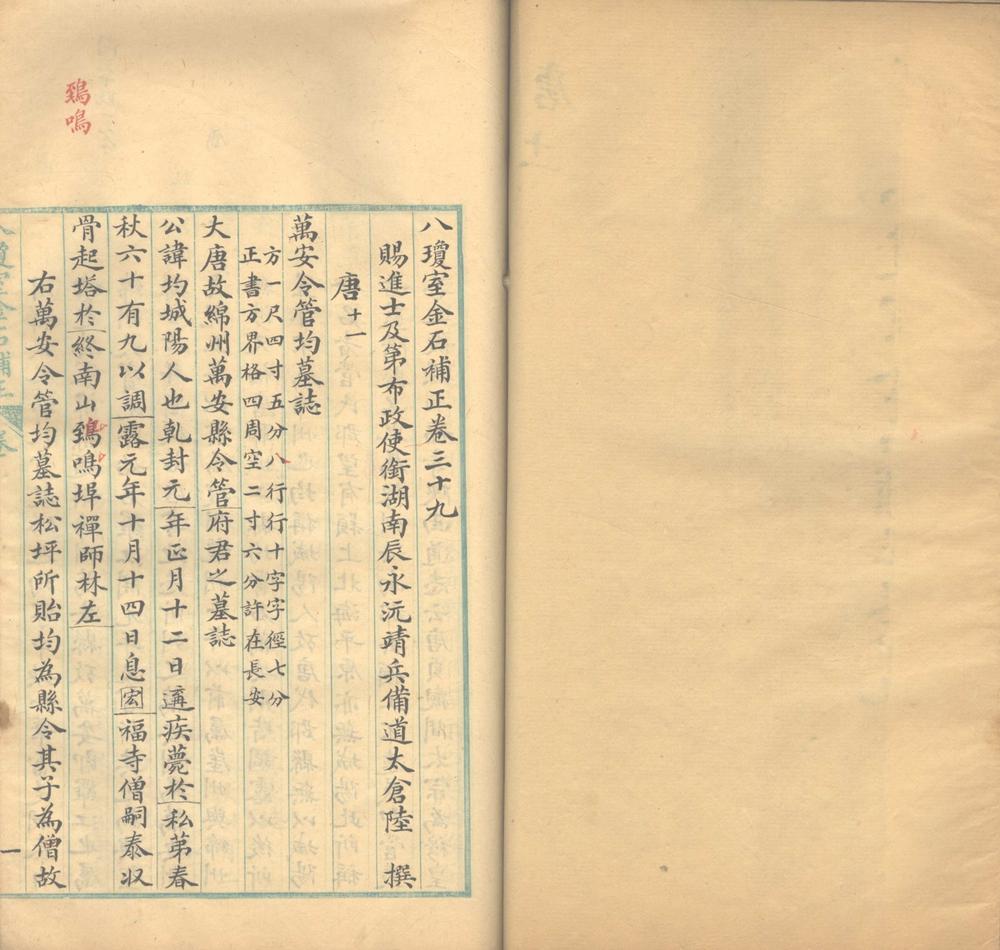 八瓊室金石補正卷三十九
賜進士及第布政使銜湖南辰永沅靖兵備道太倉陸　撰
唐十一
萬安令管均墓誌
方一尺四寸五分八行行十字字徑七分
正書方界格四周空二寸六分許在長安
大唐故綿州萬安縣令管府君之墓誌
公諱均城陽人也乹封元年正月十二日遘疾薨於私苐春
秋六十有九以調露元年十月十四日息宏福寺僧嗣泰収
骨起塔於終南山鵄鳴埠禪師林左
右萬安令管均墓誌松坪所貽均為縣令其子為僧故
一
鵄鳴